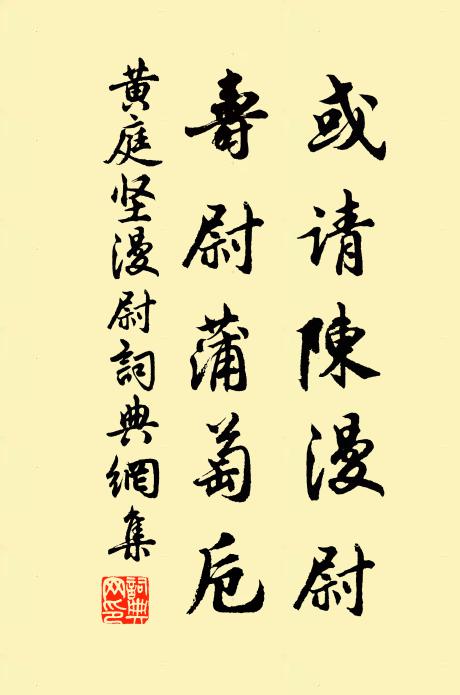 或请陳漫尉
壽尉蒲萄卮
黄庭坚漫尉詞典網集
詞典网印